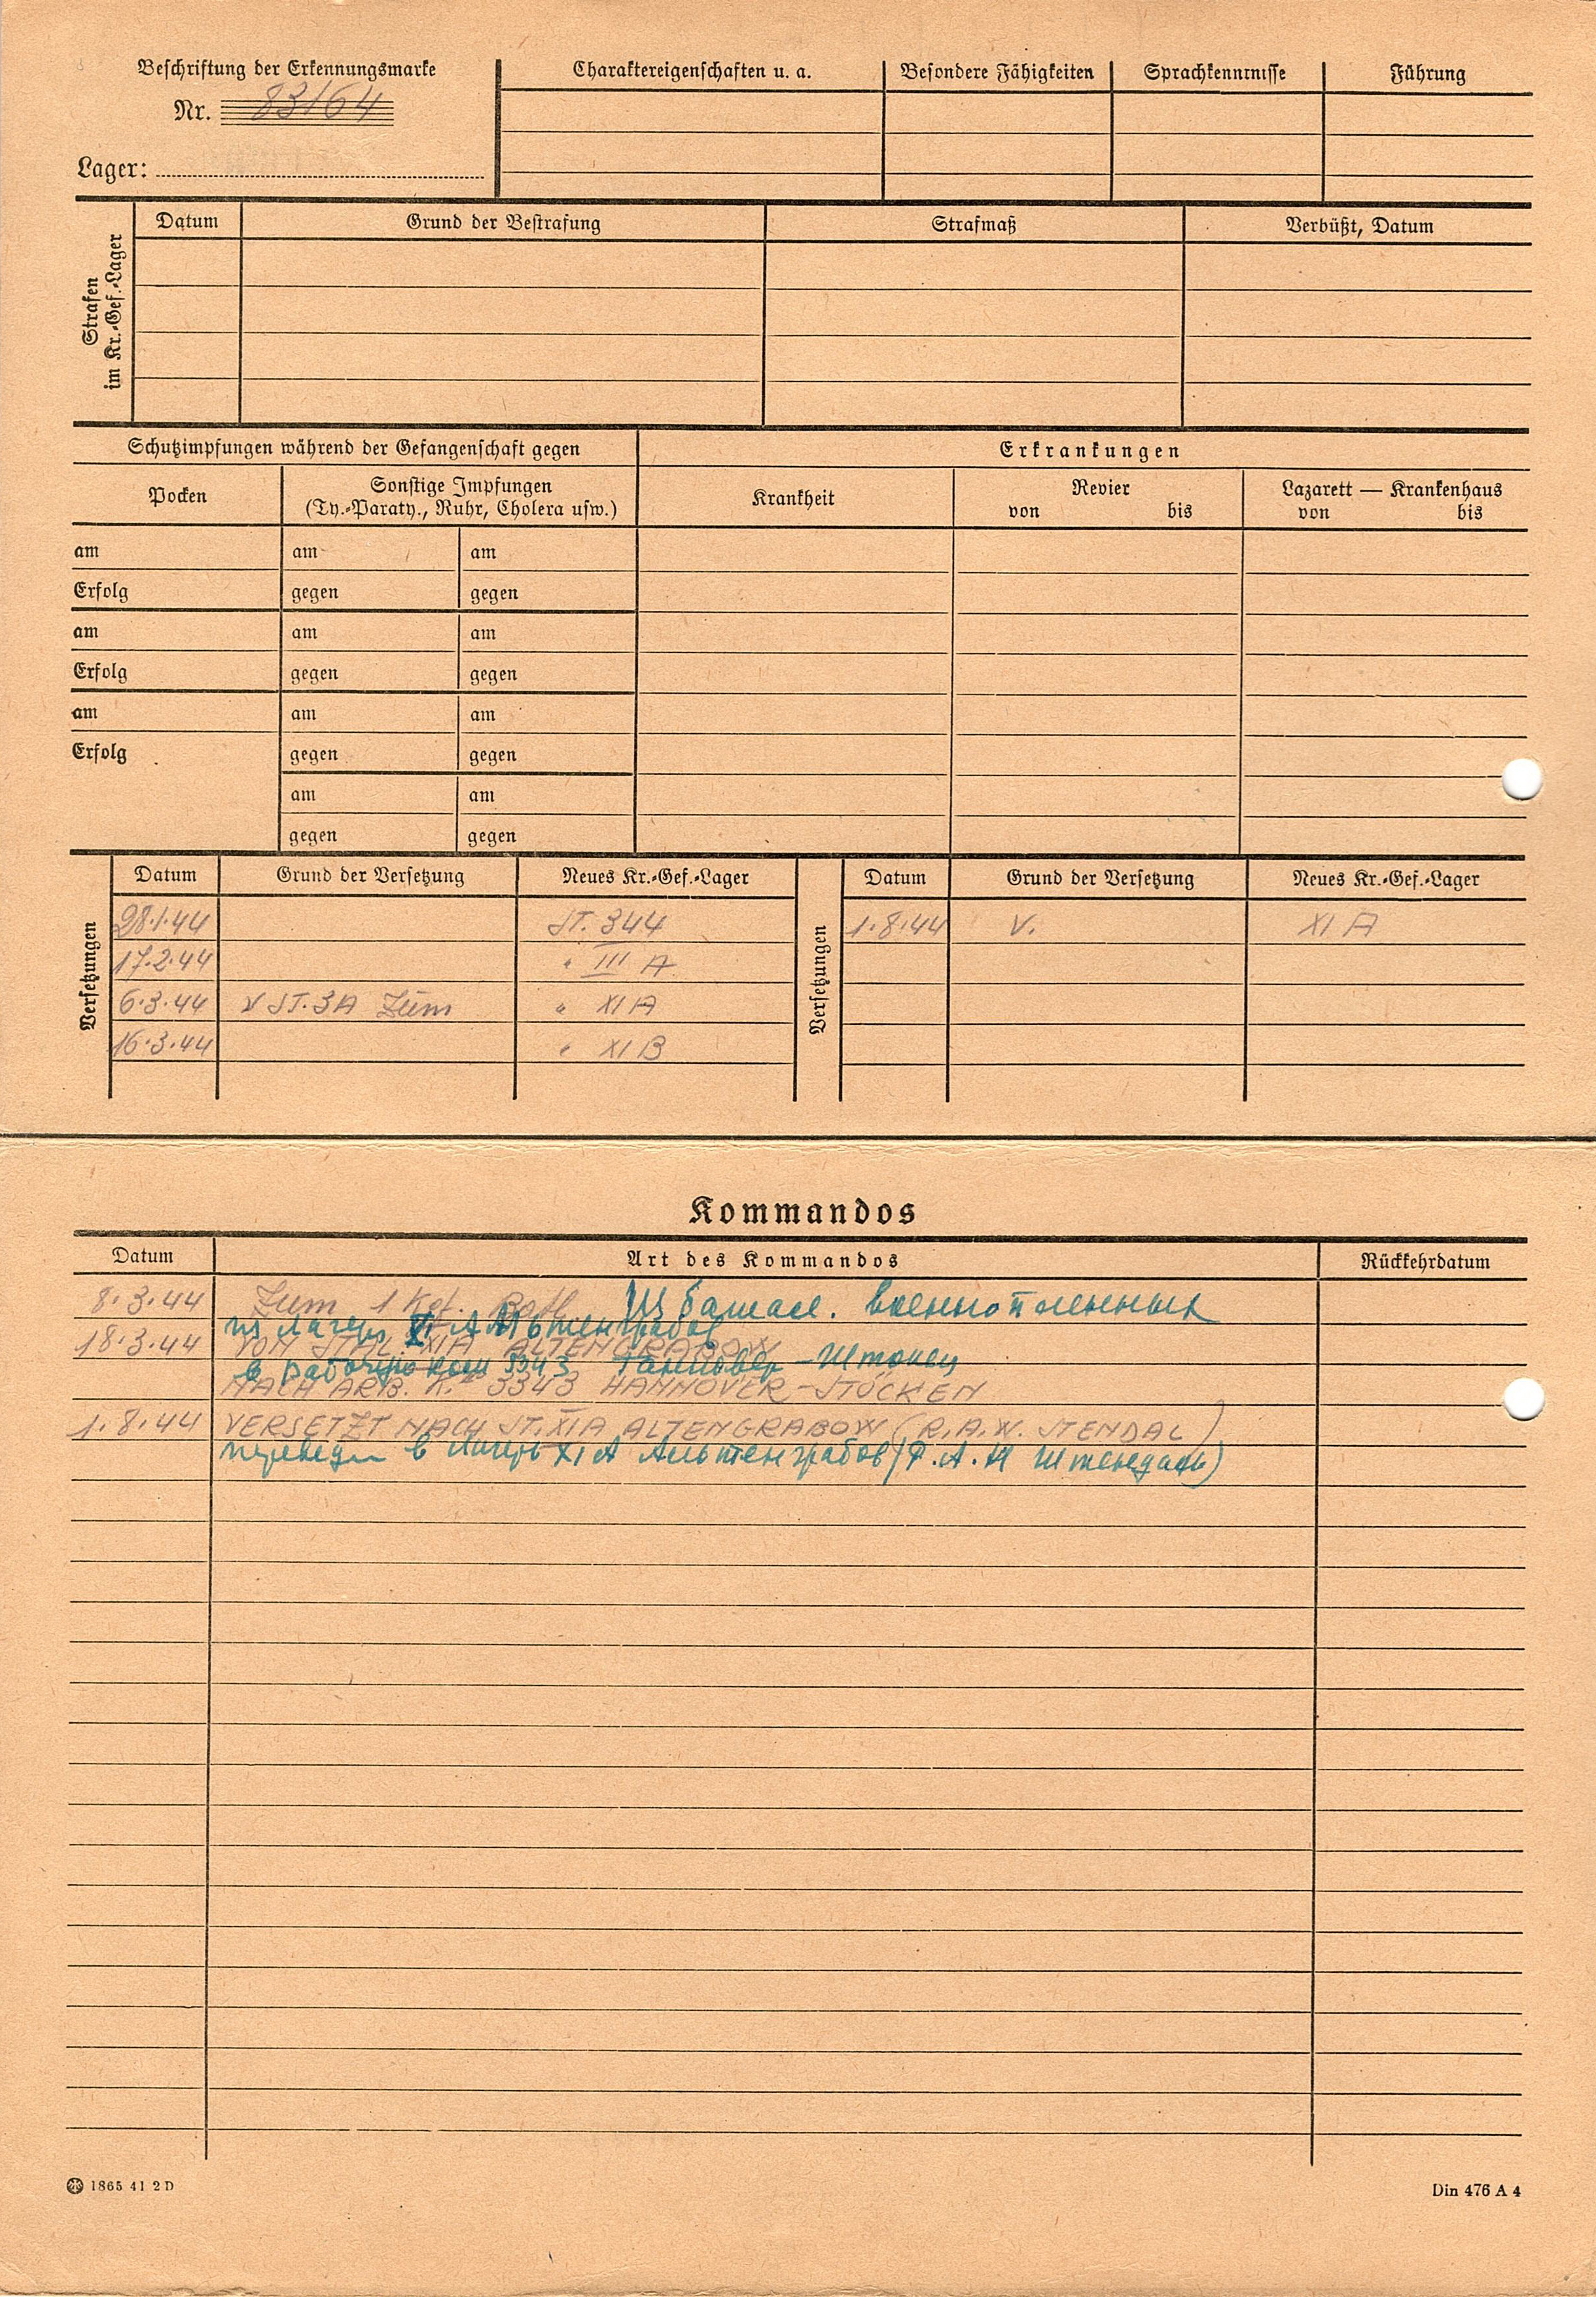 Beschriftung der Erkennungsmarke
Nr. 83164
Lager:
Charaktereigenschaften u. a.
Besondere Fähigkeiten
Sprachkenntnisse
Führung
Strafen
im Kr.-Gef.-Lager
Datum
Grund der Bestrafung
Strafmaß
Verbüßt, Datum
Schutzimpfungen während der Gefangenschaft gegen
Erkrankungen
Pocken
Sonstige Impfungen
(Ty.-Paraty., Ruhr, Cholera usw.)
Krankheit
Revier
von bis
Lazarett — Krankenhaus
von bis
am am am
Erfolg gegen gegen
am am am
Erfolg gegen gegen
am am am
Erfolg gegen gegen
am am
gegen gegen
Versetzungen
Datum Grund der Versetzung Neues Kr.-Gef.-Lager
28.1.44 ST. 344
17.2.44 " III A
6.3.44 v ST. 3A Zum " XI A
16.3.44 " XI B
Versetzungen
Datum Grund der Versetzung Neues Kr.-Gef.-Lager
1.8.44 V. XI A
Kommandos
Datum Art des Kommandos Rückkehrdatum
8.3.44 Zum 1 Kgf. Batl. Из батал. военнопленных
из лагеря XI A Альтенграбов
18.3.44 VON STAL. XIA ALTENGRABOW
в рабочую ком 3343 Ганновер-Штокен
NACH ARB. K. 3343 HANNOVER-STÖCKEN
1.8.44 VERSETZT NACH ST. XIA ALTENGRABOW (R.A.W. STENDAL)
переведен в лагерь XI A Альтенграбов (Р.А.В Штендаль)
1865 41 2 D
Din 476 A 4